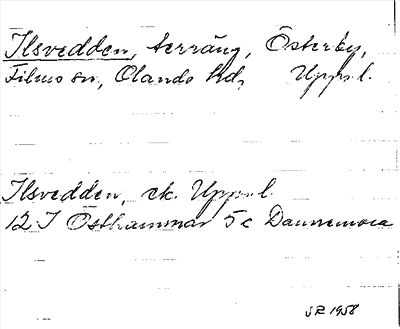 Ilsvedden, terräng, Österby,
Films sn, Olands hd, Upps. l.
Ilsvedden, ek. Upps. l.
12 I Östhammar 5c Dannemora
SR 1958